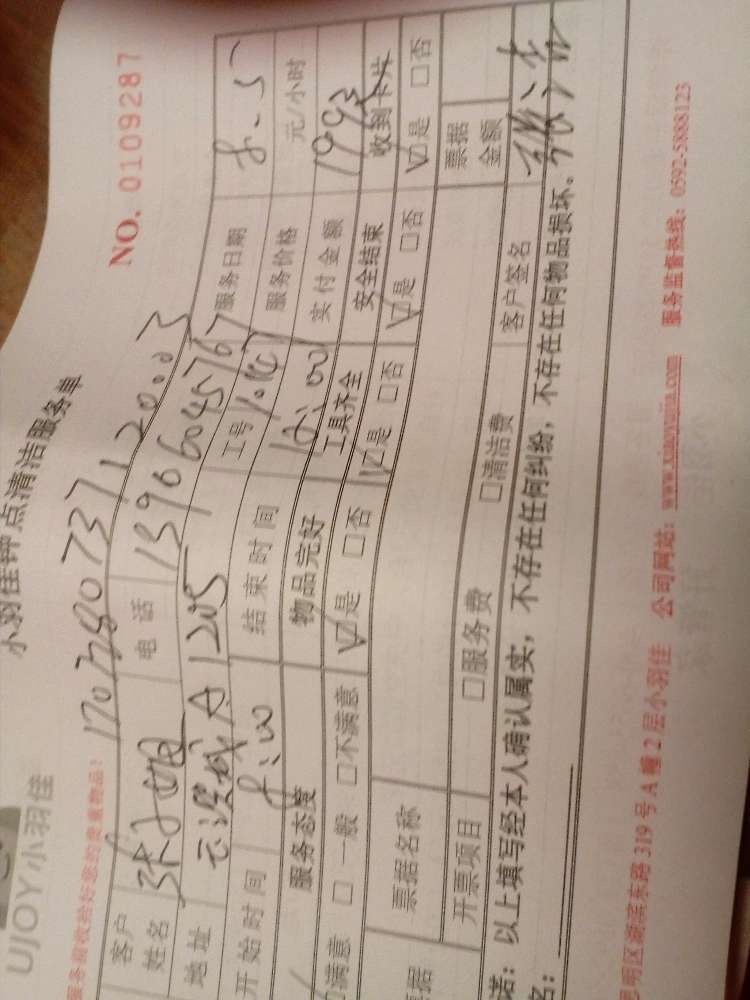 UJOY小羽佳
小羽佳钟点清洁服务单
NO. 0109287
服务前收拾好您的贵重物品!
客户姓名 电话 13906045767 服务日期 8-5
地址 A1205 工号 服务价格 元/小时
开始时间 8:00 结束时间 12:00 实付金额 199
服务态度 物品完好 工具齐全 安全结束 收到卡片
满意 □一般 □不满意 ☑是 □否 ☑是 □否 ☑是 □否 ☑是 □否
票据名称 票据金额
开票项目 □服务费 □清洁费 客户签名
诺:以上填写经本人确认属实,不存在任何纠纷,不存在任何物品损坏。
名:
思明区湖滨东路319号A幢2层小羽佳 公司网站:www.xiaoyujia.com 服务监督热线:0592-5888123